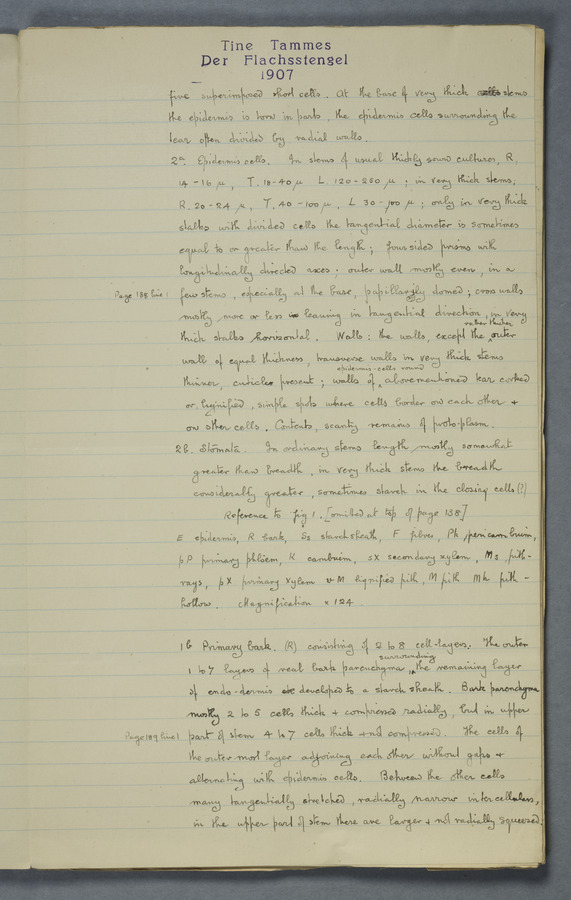 Tine Tammes
Der Flachsstengel
1907
five superimposed short cells. At the base of very thick stems
the epidermis is torn in parts, the epidermis cells surrounding the
tear often divided by radial walls.
2a. Epidermis cells. In stems of usual thickly sown cultures, R.
14-16 µ, T. 18-40 µ L. 120-250 µ; in very thick stems,
R. 20-24 µ, T. 40-100 µ, L 30-100 µ; only in very thick
stalks with divided cells the tangential diameter is sometimes
equal to or greater than the length; four sided prisms with
longitudinally directed axes; outer wall mostly even, in a
Page 138 line 1 few stems, especially at the base, papillarily domed; cross walls
mostly more or less leaning in tangential direction, in very
thick stalks horizontal. Walls: the walls, except the rather thicker outer
wall of equal thickness, transverse walls in very thick stems
thinner, cuticle present; walls of epidermis-cells round abovementioned tear corked
or lignified, simple spots where cells border on each other +
on other cells. Contents, scanty remains of protoplasm.
2b. Stomata. In ordinary stems length mostly somewhat
greater than breadth, in very thick stems the breadth
considerably greater, sometimes starch in the closing cells (?)
Reference to fig 1. [omitted at top of page 138]
E epidermis, R bark, Ss starch sheath, F fibres, Ph pericambium,
pP primary phloem, K cambium, sX secondary xylem, Ms pith-
rays, pX primary xylem vM lignified pith, M pith Mh pith-
hollow. Magnification x 124
1b Primary bark. (R) consisting of 2 to 8 cell-layers. The outer
1 to 7 layers of real bark parenchyma surrounding the remaining layer
of endo-dermis developed to a starch sheath. Bark parenchyma
mostly 2 to 5 cells thick + compressed radially, but in upper
Page 139 line 1 part of stem 4 to 7 cells thick + not compressed. The cells of
the outer most layer adjoining each other without gaps +
alternating with epidermis cells. Between the other cells
many tangentially stretched, radially narrow intercellulars,
in the upper part of stem there are larger + not radially squeezed;